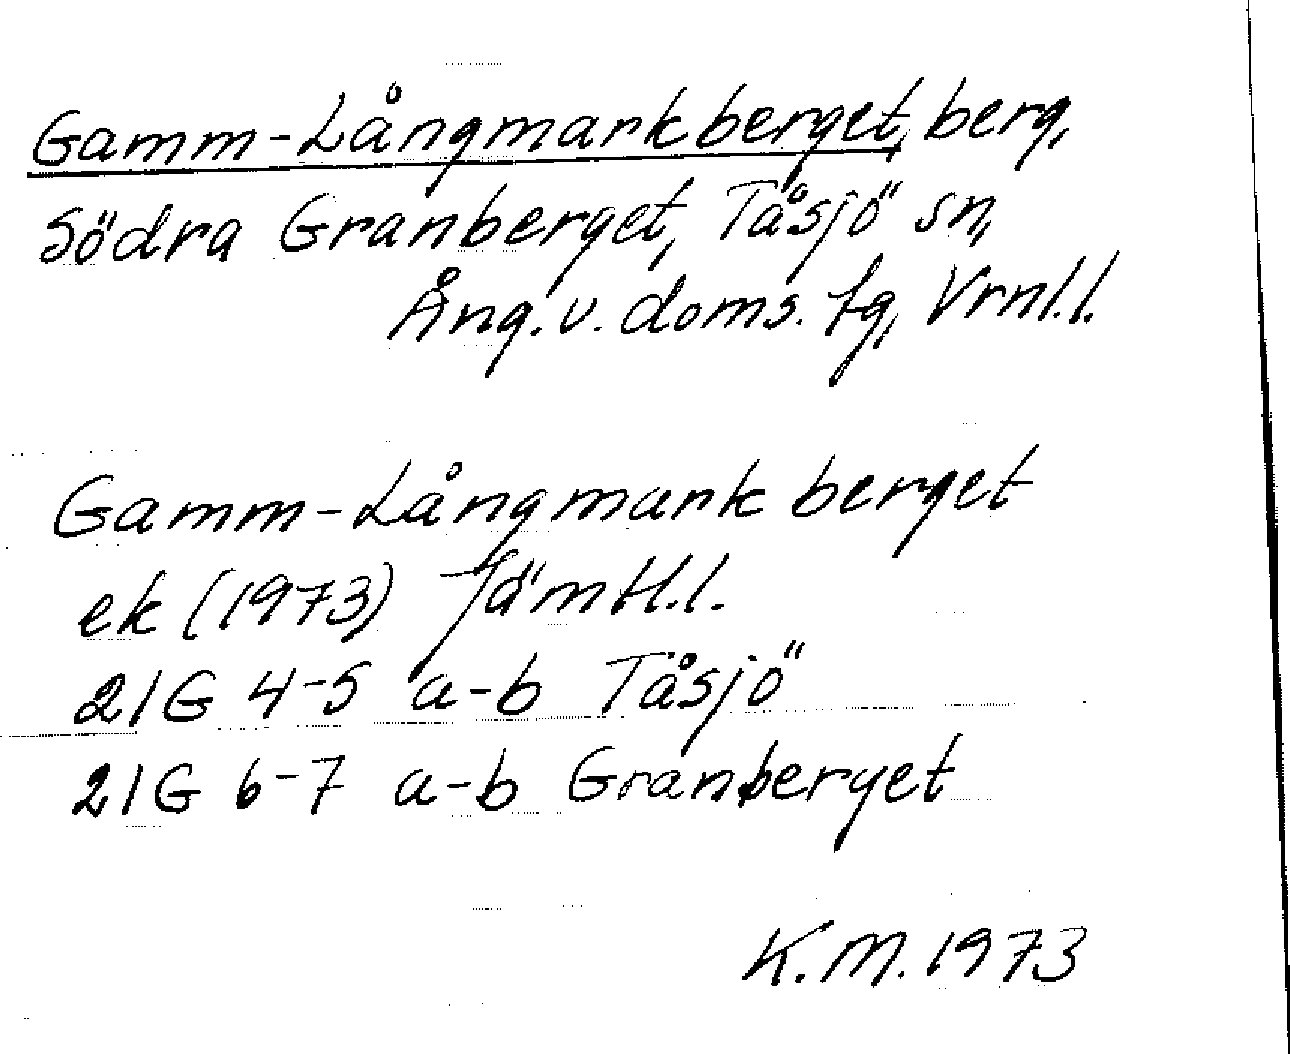 Gamm-Långmarkberget, berg,
Södra Granberget, Tåsjö sn,
Ång. v. doms. fg, Vrnl.l.
Gamm-Långmarkberget
ek (1973) Jämtl.l.
21G 4-5 a-b Tåsjö
21G 6-7 a-b Granberget
K.M. 1973